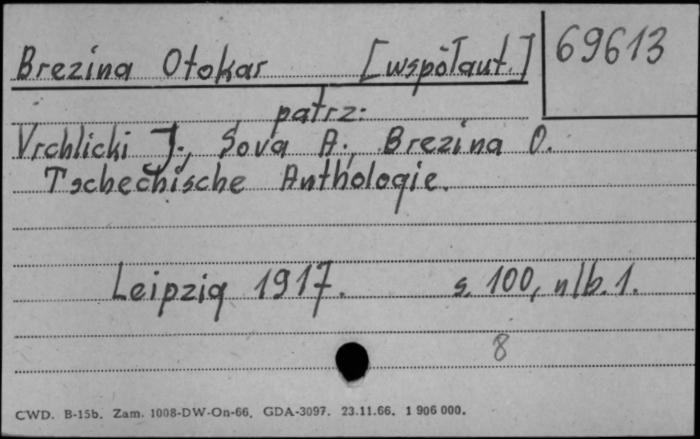 Brezina Otokar [współaut.] 69613
patrz:
Vrchlicki J., Sova A., Brezina O.
Tschechische Anthologie.
Leipzig 1917. s. 100, nlb. 1.
8
CWD. B-15b. Zam. 1008-DW-On-66. GDA-3097. 23.11.66. 1 906 000.